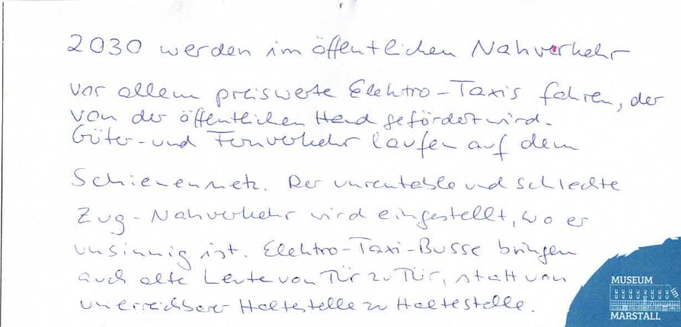 2030 werden im öffentlichen Nahverkehr
vor allem preiswerte Elektro-Taxis fahren, der
von der öffentlichen Hand gefördert wird.
Güter- und Fernverkehr laufen auf dem
Schienennetz. Der unrentable und schlechte
Zug-Nahverkehr wird eingestellt, wo er
unsinnig ist. Elektro-Taxi-Busse bringen
auch alte Leute von Tür zu Tür, statt von
unerreichbarer Haltestelle zu Haltestelle.
MUSEUM
MARSTALL